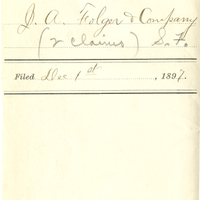 J. A. Folger & Company
(2 claims) S. F.
Filed Dec 1st, 1897.